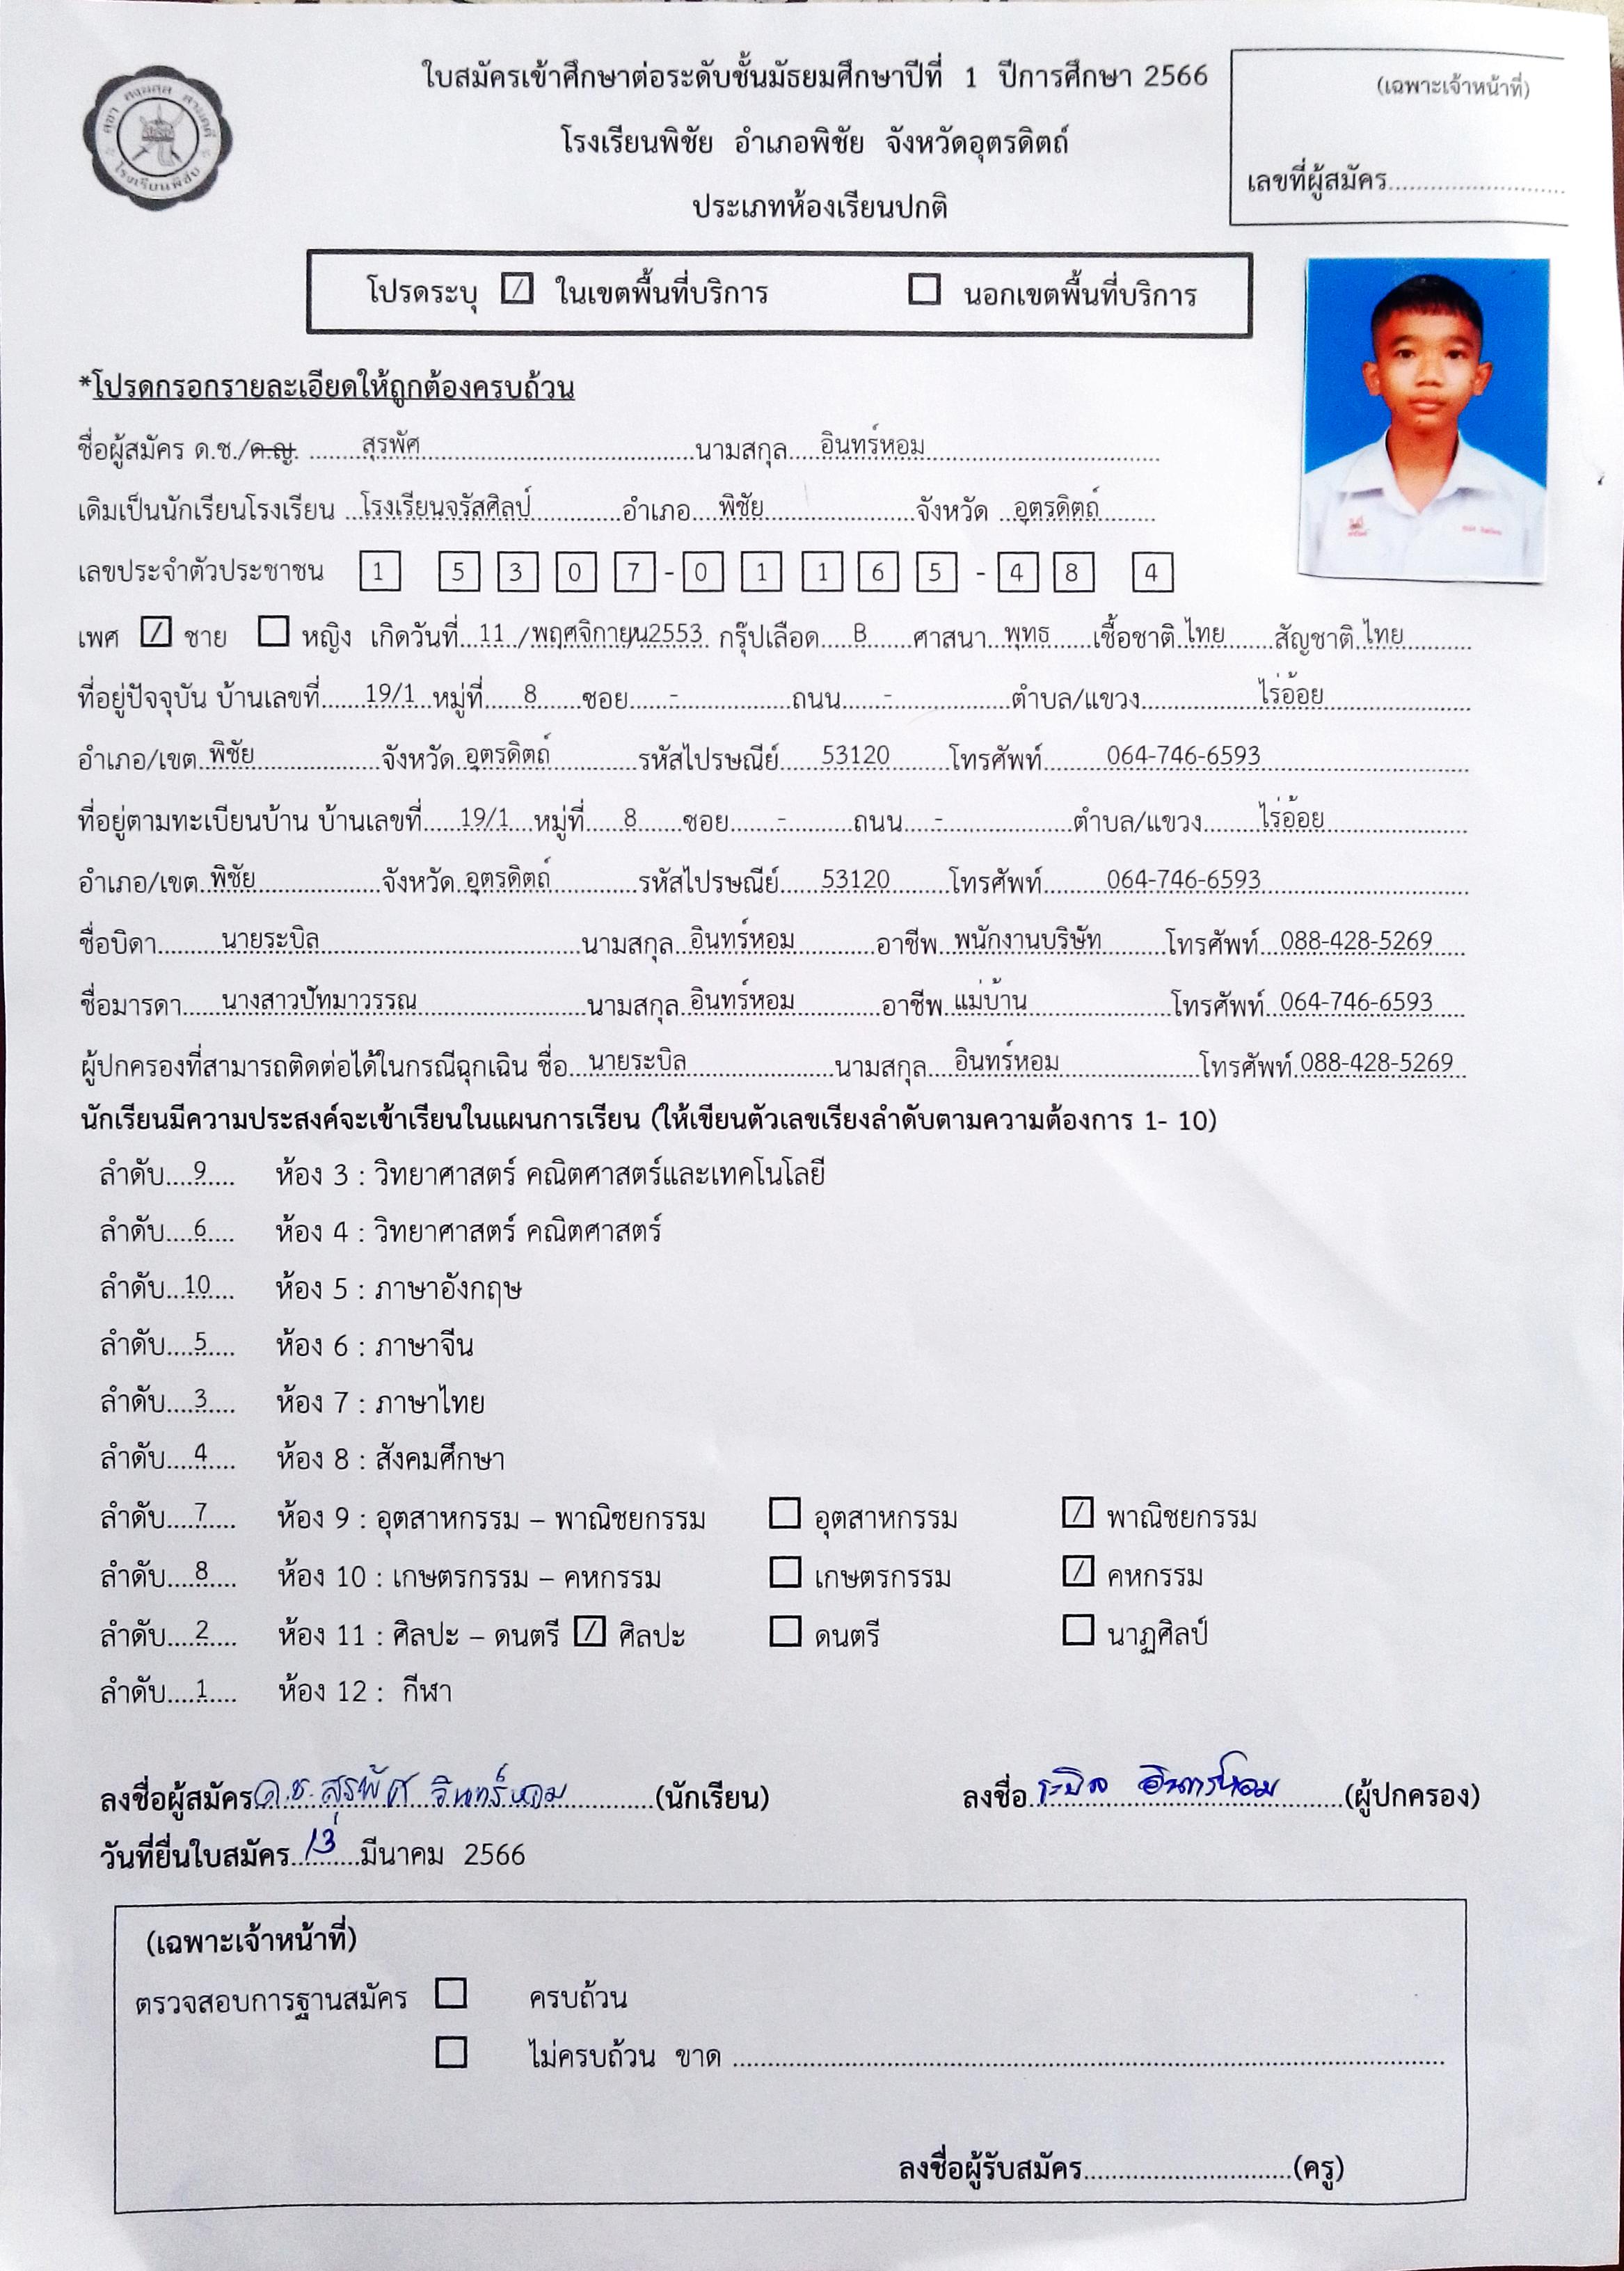 ใบสมัครเข้าศึกษาต่อระดับชั้นมัธยมศึกษาปีที่ 1 ปีการศึกษา 2566
(เฉพาะเจ้าหน้าที่)
โรงเรียนพิชัย อำเภอพิชัย จังหวัดอุตรดิตถ์
เลขที่ผู้สมัคร..........................
ประเภทห้องเรียนปกติ
โรงเรียนพิชัย
โปรดระบุ ☑ ในเขตพื้นที่บริการ ☐ นอกเขตพื้นที่บริการ
*โปรดกรอกรายละเอียดให้ถูกต้องครบถ้วน
ชื่อผู้สมัคร ด.ช./ด.ญ. สุรพัศ นามสกุล อินทร์หอม
เดิมเป็นนักเรียนโรงเรียน โรงเรียนจรัสศิลป์ อำเภอ พิชัย จังหวัด อุตรดิตถ์
เลขประจำตัวประชาชน 1 5 3 0 7 - 0 1 1 6 5 - 4 8 4
เพศ ☑ ชาย ☐ หญิง เกิดวันที่ 11 /พฤศจิกายน/2553 กรุ๊ปเลือด B ศาสนา พุทธ เชื้อชาติ ไทย สัญชาติ ไทย
ที่อยู่ปัจจุบัน บ้านเลขที่ 19/1 หมู่ที่ 8 ซอย - ถนน - ตำบล/แขวง ไร่อ้อย
อำเภอ/เขต พิชัย จังหวัด อุตรดิตถ์ รหัสไปรษณีย์ 53120 โทรศัพท์ 064-746-6593
ที่อยู่ตามทะเบียนบ้าน บ้านเลขที่ 19/1 หมู่ที่ 8 ซอย - ถนน - ตำบล/แขวง ไร่อ้อย
อำเภอ/เขต พิชัย จังหวัด อุตรดิตถ์ รหัสไปรษณีย์ 53120 โทรศัพท์ 064-746-6593
ชื่อบิดา นายระบิล นามสกุล อินทร์หอม อาชีพ พนักงานบริษัท โทรศัพท์ 088-428-5269
ชื่อมารดา นางสาวปัทมาวรรณ นามสกุล อินทร์หอม อาชีพ แม่บ้าน โทรศัพท์ 064-746-6593
ผู้ปกครองที่สามารถติดต่อได้ในกรณีฉุกเฉิน ชื่อ นายระบิล นามสกุล อินทร์หอม โทรศัพท์ 088-428-5269
นักเรียนมีความประสงค์จะเข้าเรียนในแผนการเรียน (ให้เขียนตัวเลขเรียงลำดับตามความต้องการ 1- 10)
ลำดับ 9 ห้อง 3 : วิทยาศาสตร์ คณิตศาสตร์และเทคโนโลยี
ลำดับ 6 ห้อง 4 : วิทยาศาสตร์ คณิตศาสตร์
ลำดับ 10 ห้อง 5 : ภาษาอังกฤษ
ลำดับ 5 ห้อง 6 : ภาษาจีน
ลำดับ 3 ห้อง 7 : ภาษาไทย
ลำดับ 4 ห้อง 8 : สังคมศึกษา
ลำดับ 7 ห้อง 9 : อุตสาหกรรม – พาณิชยกรรม ☐ อุตสาหกรรม ☑ พาณิชยกรรม
ลำดับ 8 ห้อง 10 : เกษตรกรรม – คหกรรม ☐ เกษตรกรรม ☑ คหกรรม
ลำดับ 2 ห้อง 11 : ศิลปะ – ดนตรี ☑ ศิลปะ ☐ ดนตรี ☐ นาฏศิลป์
ลำดับ 1 ห้อง 12 : กีฬา
ลงชื่อผู้สมัคร ด.ช. สุรพัศ อินทร์หอม (นักเรียน) ลงชื่อ ระบิล อินทร์หอม (ผู้ปกครอง)
วันที่ยื่นใบสมัคร 13 มีนาคม 2566
(เฉพาะเจ้าหน้าที่)
ตรวจสอบการฐานสมัคร ☐ ครบถ้วน
☐ ไม่ครบถ้วน ขาด ..........................
ลงชื่อผู้รับสมัคร..........................(ครู)